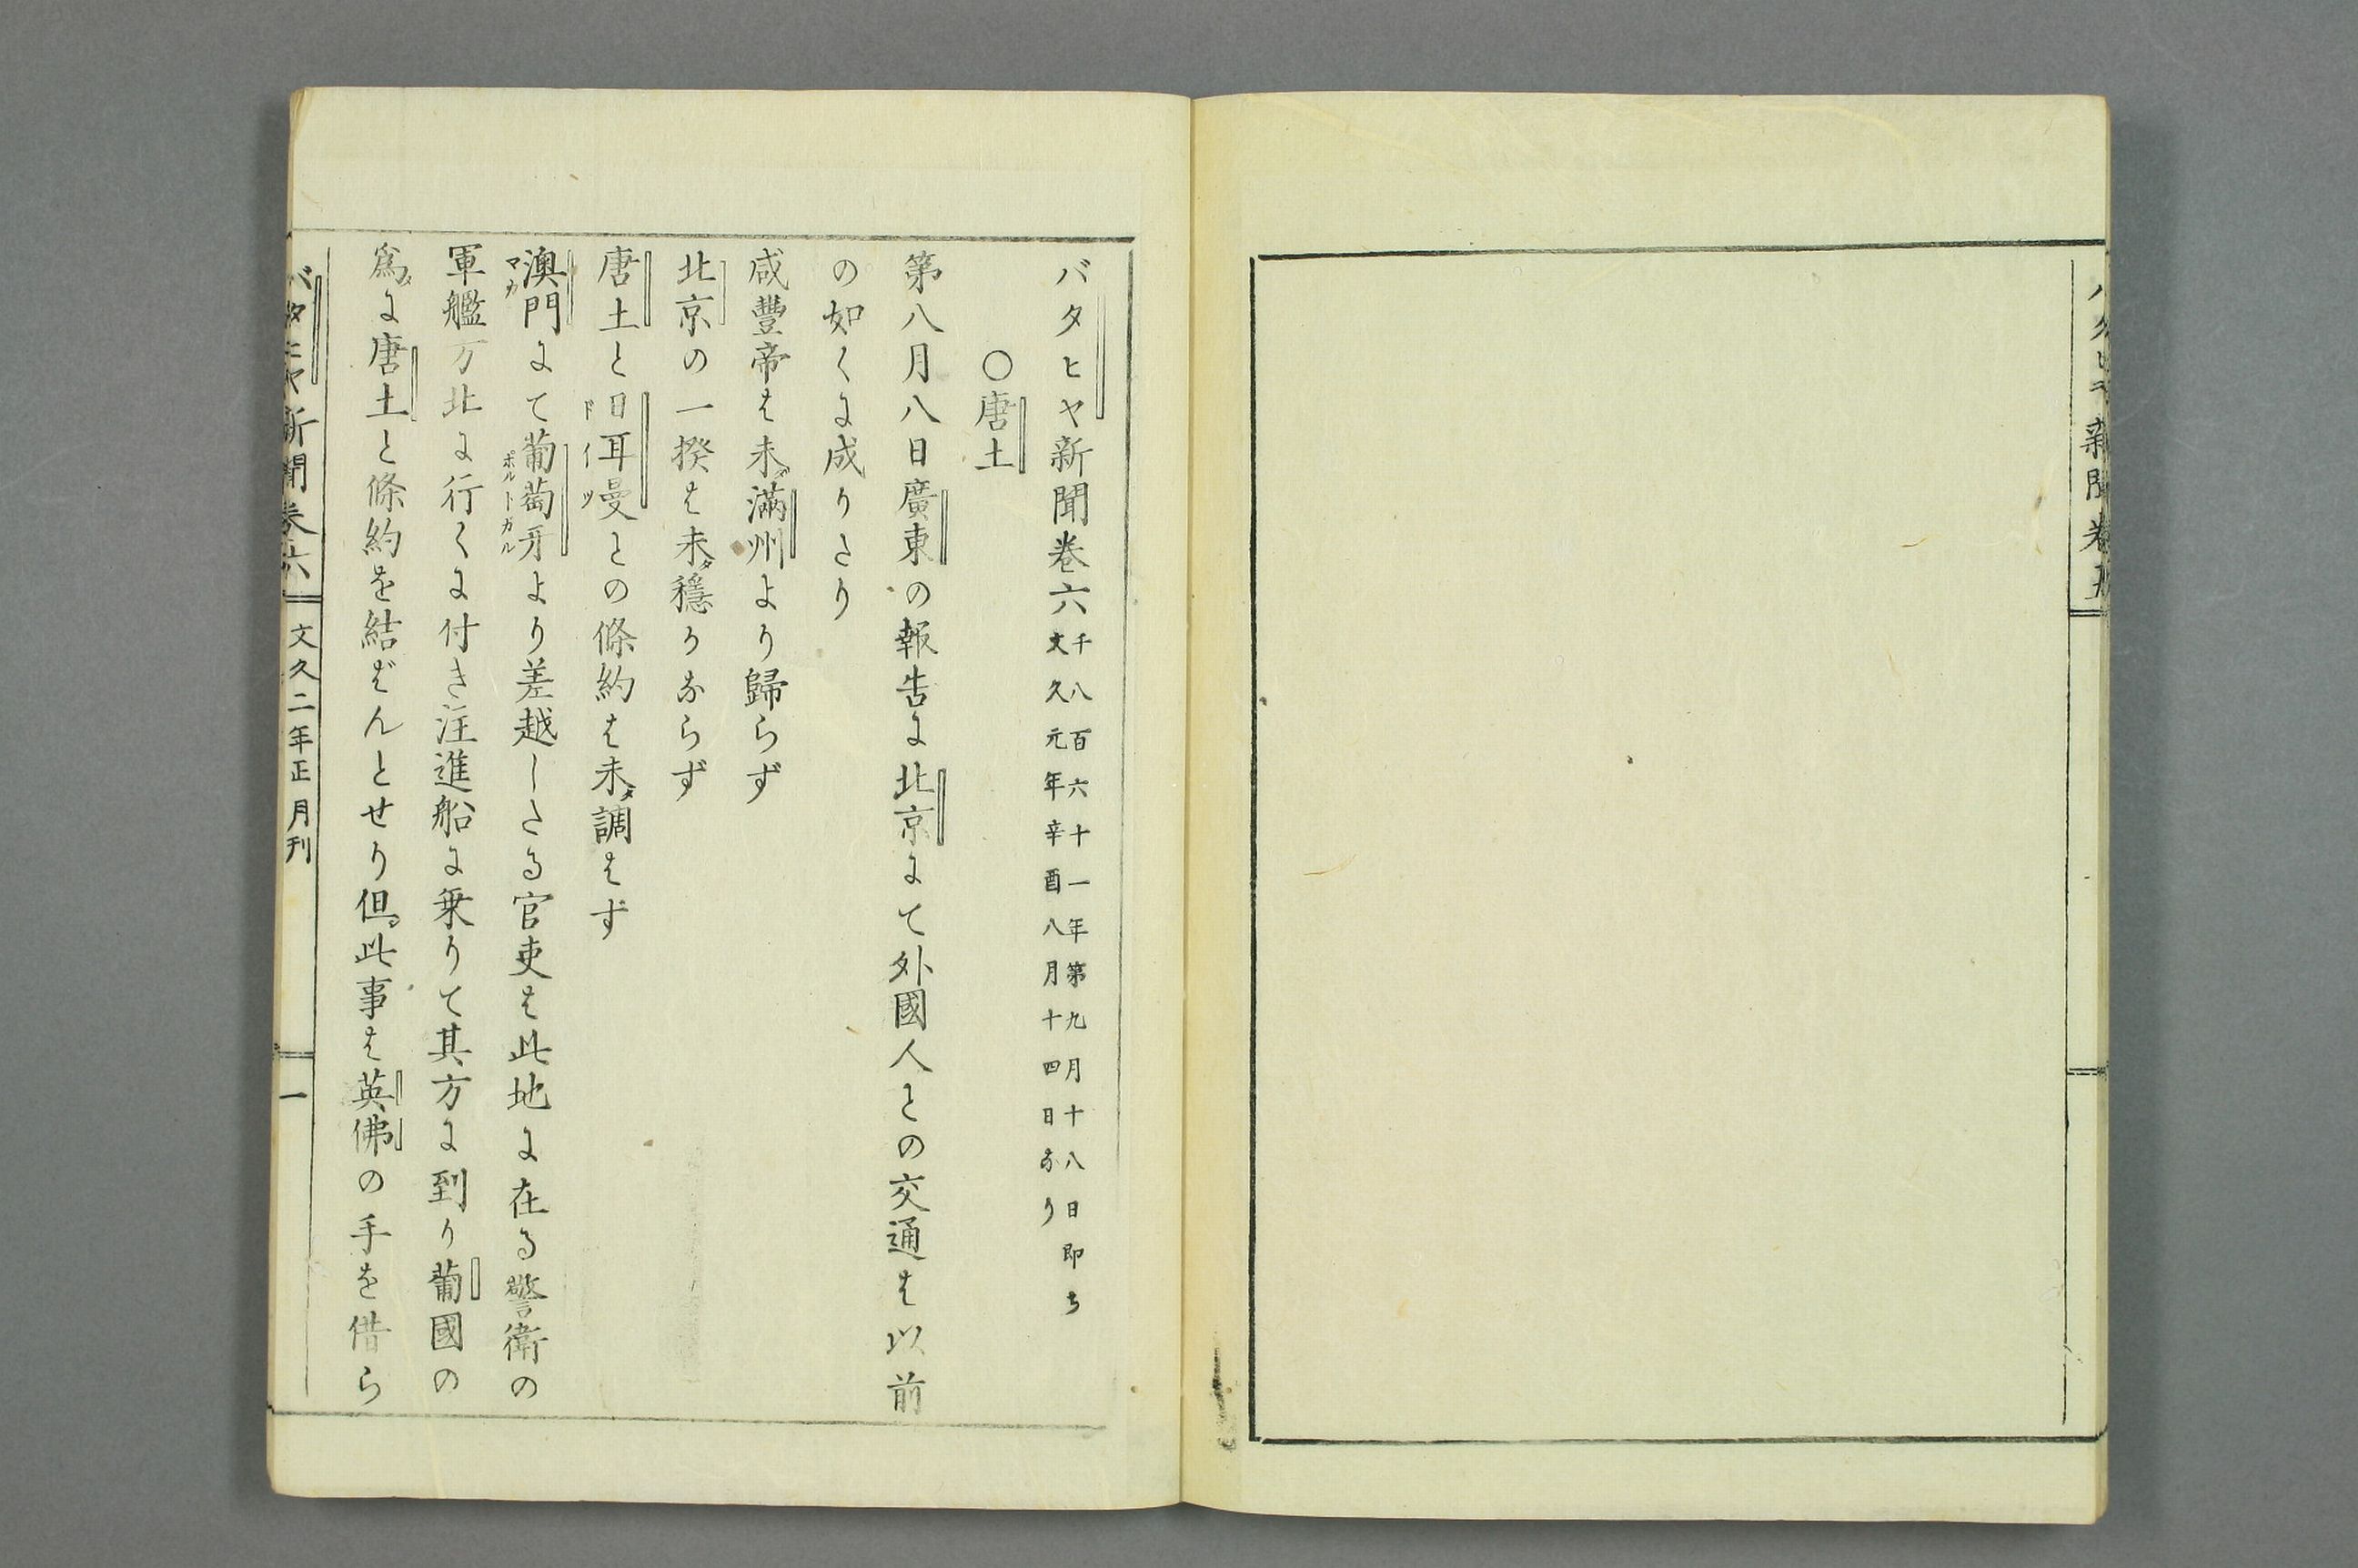 バタヒヤ新聞卷五
バタヒヤ新聞卷六
千八百六十一年第九月十八日即ち
文久元年辛酉八月十四日なり
〇唐土
第八月八日廣東の報告に北京にて外國人との交通は以前
の如くに成りたり
咸豐帝は未タ滿州より歸らず
北京の一揆は未タ穩かならず
唐土と日耳曼ドイツとの條約は未タ調はず
澳門マカにて葡萄牙ポルトガルより差越したる官吏は此地に在る警衛の
軍艦方北に行くに付き注進船に乗りて其方に到り葡國の
爲メに唐土と條約を結ばんとせり但シ此事は英佛の手を借ら
バタヒヤ新聞卷六 文久二年正月刊 一